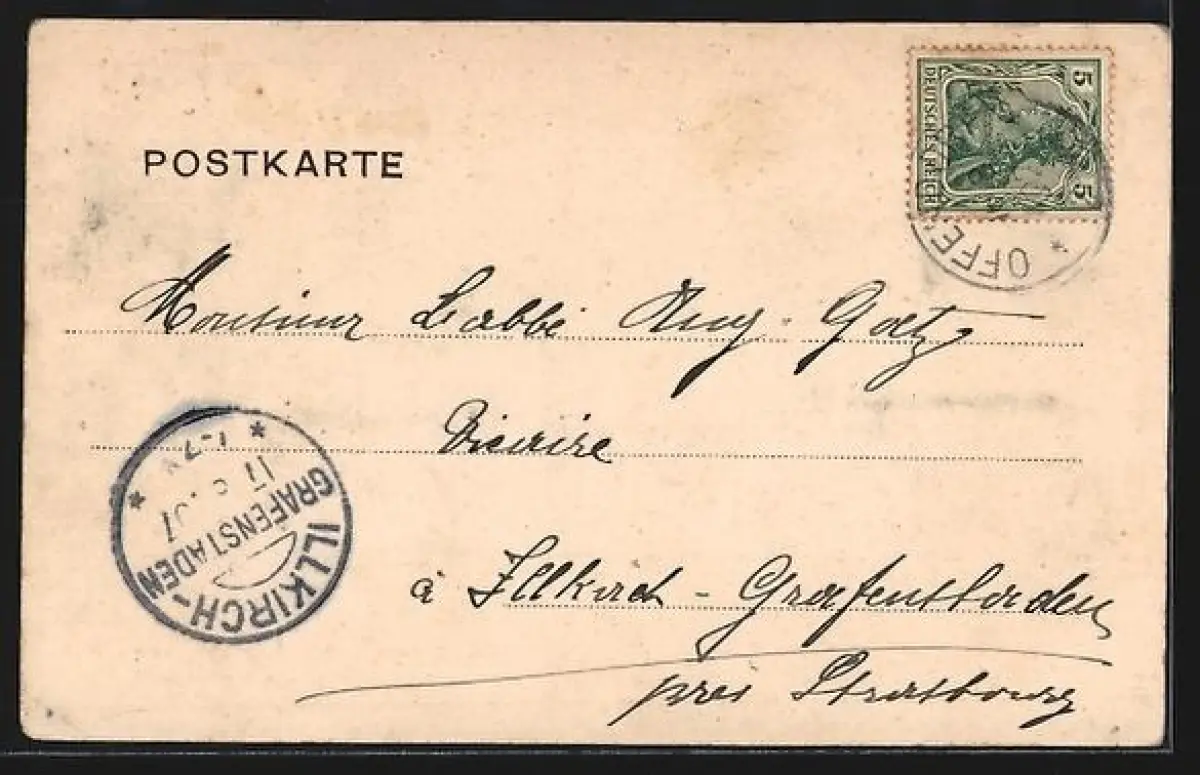 POSTKARTE
5 5
DEUTSCHES REICH
OFFE
Monsieur Labbé Aug. Goetz
Vicaire
à Illkirch-Grafenstaden
près Strasbourg
ILLKIRCH-
GRAFENSTADEN
17